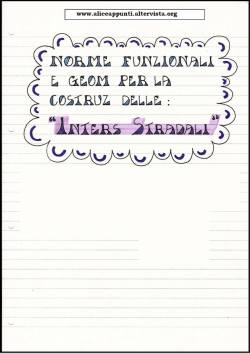 www.aliceappunti.altervista.org
NORME FUNZIONALI
E GEOM PER LA
COSTRUZ DELLE :
“INTERS STRADALI”